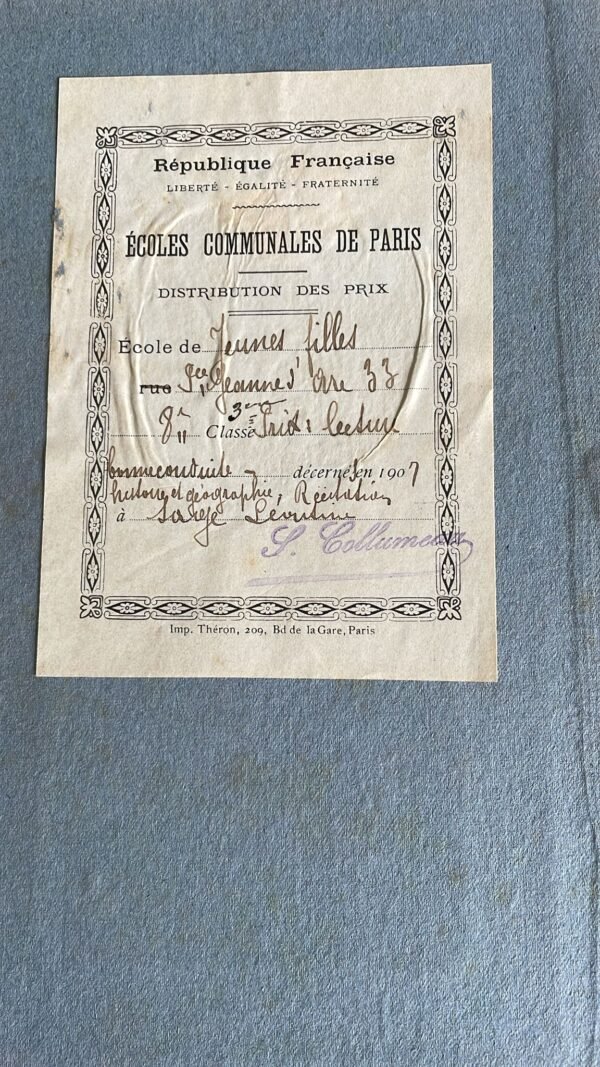 République Française
LIBERTÉ - ÉGALITÉ - FRATERNITÉ
ÉCOLES COMMUNALES DE PARIS
DISTRIBUTION DES PRIX
École de Jeunes filles
rue Jeanne d'Arc 33
8e Classe 3eme Prix: lecture
bonne conduite décerné en 1907
histoire et géographie, Récitation
à Léontine
Imp. Théron, 209, Bd de la Gare, Paris